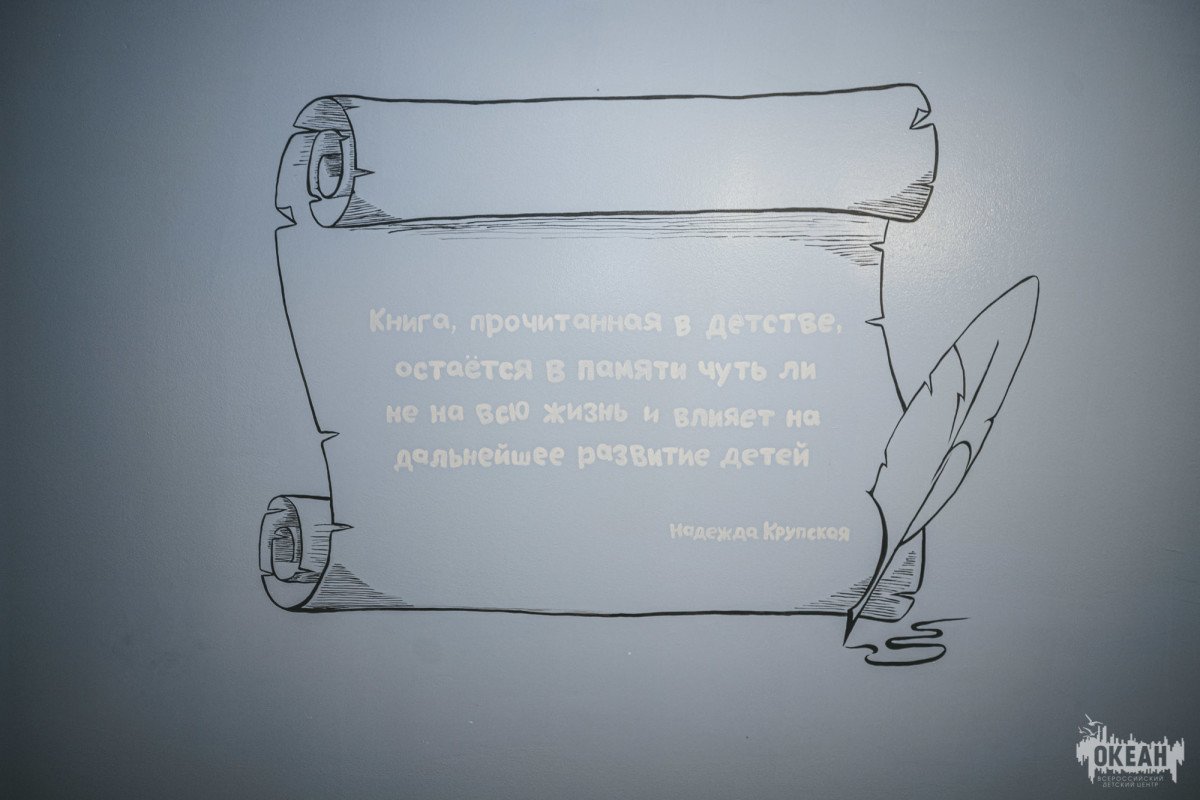 Книга, прочитанная в детстве,
остаётся в памяти чуть ли
не на всю жизнь и влияет на
дальнейшее развитие детей
Надежда Крупская
ОКЕАН
ВСЕРОССИЙСКИЙ
ДЕТСКИЙ ЦЕНТР